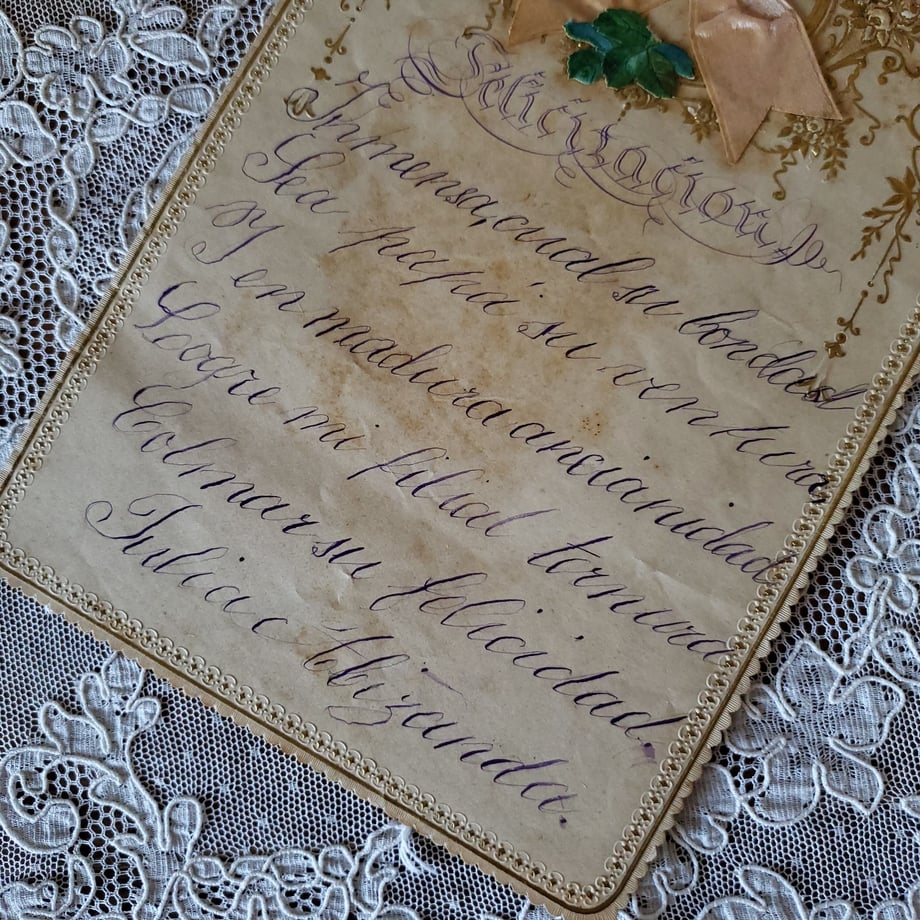 Felicitación
Inmensa, cual su bondad
Sea papá su ventura,
Y en madura ancianidad
Logre mi filial ternura
Colmar su felicidad.
Julia Abizanda.